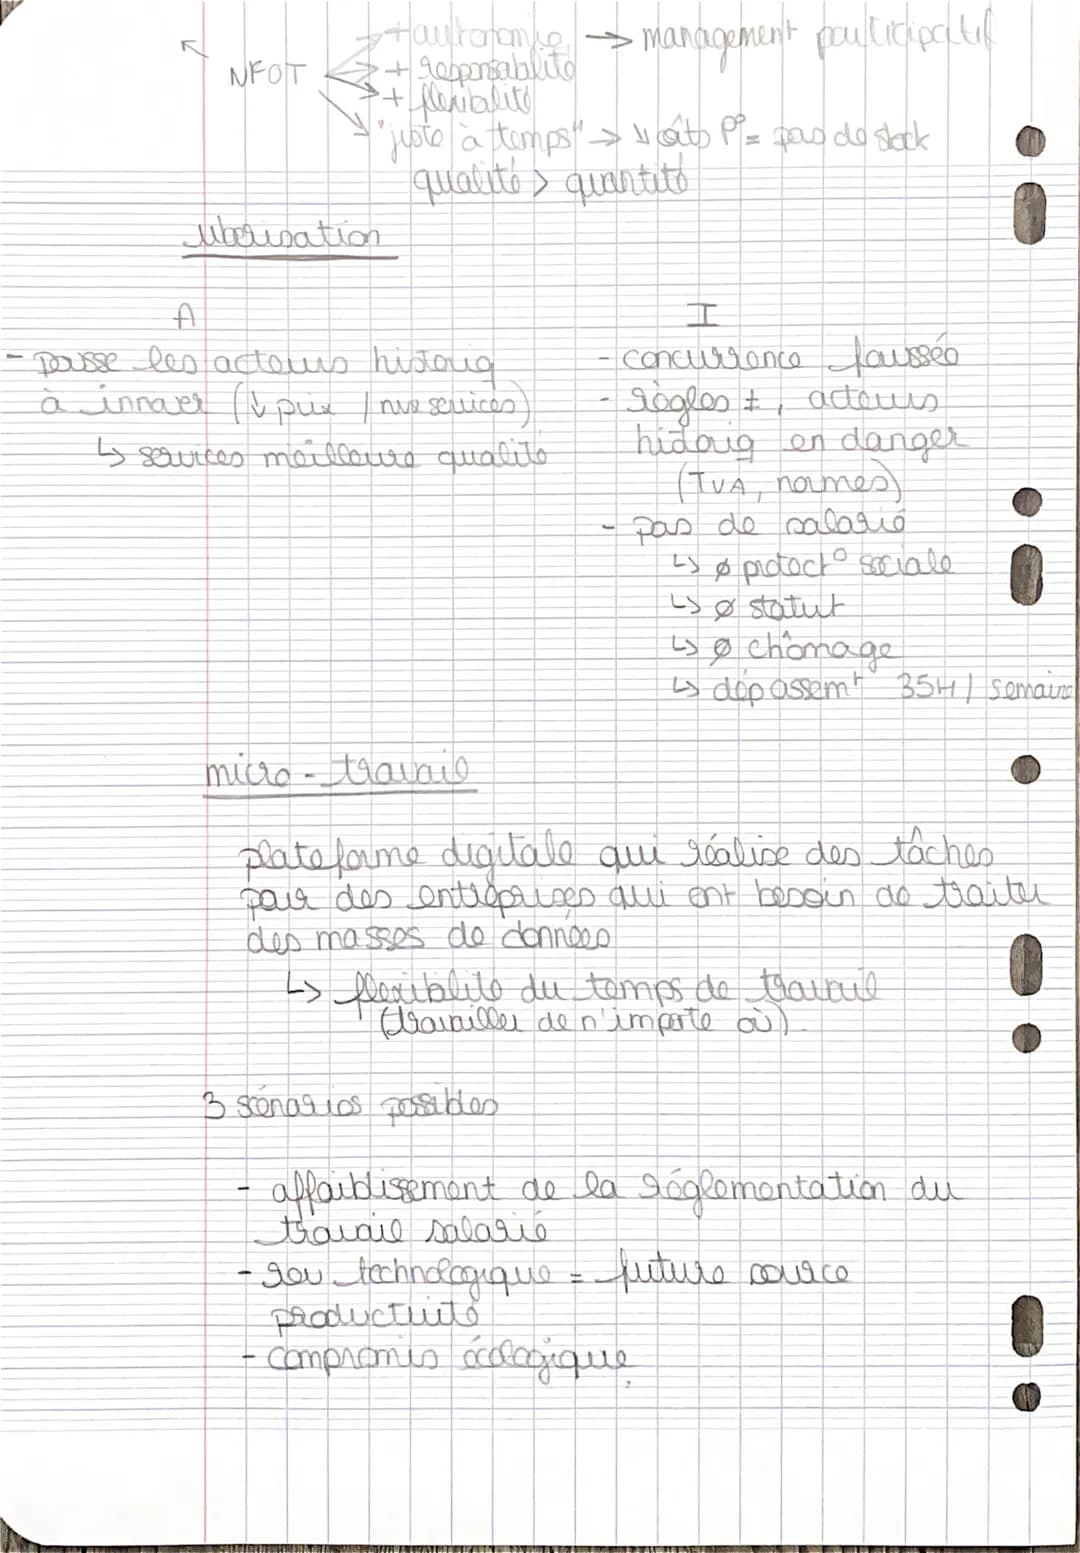 + autonomie → management participatif
NFOT + responsabilité
+ flexibilité
"juste à temps" → ↓ coûts P° = pas de stock
qualité > quantité
uberisation
A
- pousse les acteurs historiq
à innover (↓ prix / nvx services)
↳ services meilleure qualité
I
- concurrence faussée
- règles ≠, acteurs
historiq en danger
(TVA, normes)
- pas de salarié
↳ ø protect° sociale
↳ ø statut
↳ ø chômage
↳ dépassemt 35H / semaine
micro - travail
plateforme digitale qui réalise des tâches
pour des entreprises qui ont besoin de traiter
des masses de données
↳ flexibilité du temps de travail
(travailler de n'importe où).
3 scénarios possibles
- affaiblissement de la réglementation du
travail salarié
- rev technologique = future source
productivité
- compromis écologique